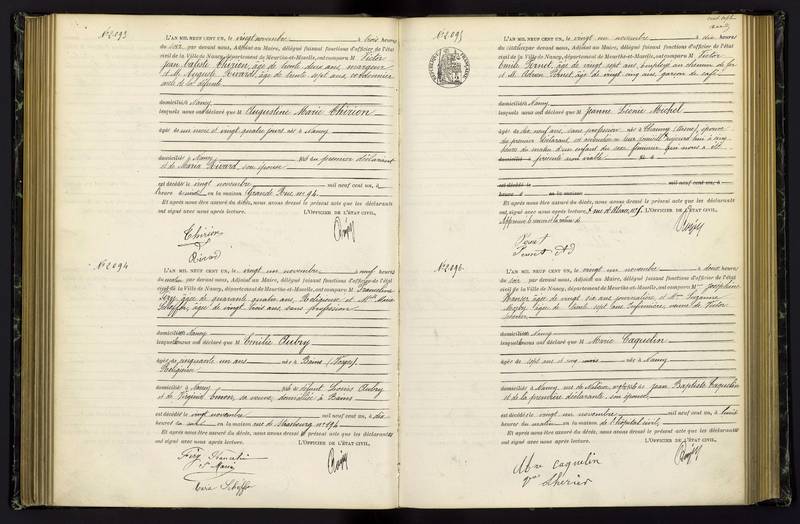 N° 2093
L'AN MIL NEUF CENT UN, le vingt novembre à trois heures
du soir, par devant nous, Adjoint au Maire, délégué faisant fonctions d'officier de l'état
civil de la Ville de Nancy, département de Meurthe-et-Moselle, ont comparu M Victor
Jean Batiste Thirion, âgé de trente deux ans,
et M. Auguste Rivard, âgé de trente sept ans, cordonnier
de la défunte
domiciliés à Nancy
lesquels nous ont déclaré que M Augustine Marie Thirion
âgée de un mois et vingt quatre jours née à Nancy
domiciliée à Nancy du premier déclarant
et de Maria Rivard, son épouse
est décédée le vingt novembre mil neuf cent un, à
heure en la maison Grande Rue, n° 94.
Et après nous être assuré du décès, nous avons dressé le présent acte que les déclarants
ont signé avec nous après lecture. L'OFFICIER DE L'ÉTAT CIVIL,
Thirion
Rivard
N° 2094
L'AN MIL NEUF CENT UN, le vingt un novembre à neuf heures
du matin par devant nous, Adjoint au Maire, délégué faisant fonctions d'officier de l'état
civil de la Ville de Nancy, département de Meurthe-et-Moselle, ont comparu M
âgée de quarante quatre ans, Religieuse et Mlle Maria
âgée de vingt trois ans, sans profession
domiciliés à Nancy
lesquelles nous ont déclaré que M Emilie Aubry
âgée de cinquante un ans née à Bains (Vosges)
Religieuse
domiciliée à Nancy de défunt Aubry
et de Virginie sa veuve, domiciliée à Bains
est décédée le vingt novembre mil neuf cent un, à dix
heures du en la maison rue de Strasbourg n° 194
Et après nous être assuré du décès, nous avons dressé le présent acte que les déclarants
ont signé avec nous après lecture. L'OFFICIER DE L'ÉTAT CIVIL,
N° 2095
L'AN MIL NEUF CENT UN, le vingt un novembre à dix heures
du matin par devant nous, Adjoint au Maire, délégué faisant fonctions d'officier de l'état
civil de la Ville de Nancy, département de Meurthe-et-Moselle, ont comparu M Victor
Emile âgé de vingt sept ans, employé au chemin de fer
et M. Adrien âgé de vingt cinq ans, garçon de café
domiciliés à Nancy
lesquels nous ont déclaré que M Jeanne Léonie Michel
âgée de dix neuf ans, sans profession née à Chauny (Aisne), épouse
du premier déclarant est accouchée en leur domicile aujourd'hui à cinq
heures du matin d'un enfant du sexe féminin qui nous a été
présenté non viable
est décédé le mil neuf cent un, à
heure en la maison
Et après nous être assuré du décès, nous avons dressé le présent acte que les déclarants
ont signé avec nous après lecture, rue d'Alsace, L'OFFICIER DE L'ÉTAT CIVIL,
N° 2096
L'AN MIL NEUF CENT UN, le vingt un novembre à heures
du soir par devant nous, Adjoint au Maire, délégué faisant fonctions d'officier de l'état
civil de la Ville de Nancy, département de Meurthe-et-Moselle, ont comparu M Joséphine
âgée de vingt six ans, journalière, et Mme Suzanne
âgée de trente sept ans, Infirmière, veuve de Victor
domiciliés à Nancy
lesquelles nous ont déclaré que M Marie Caquelin
âgée de sept ans et cinq mois née à Nancy
domiciliée à Nancy, rue de de Jean Baptiste Caquelin
et de la première déclarante, son épouse
est décédée le vingt un novembre mil neuf cent un, à huit
heures du matin en la maison de l'hôpital civil,
Et après nous être assuré du décès, nous avons dressé le présent acte que les déclarants
ont signé avec nous après lecture. L'OFFICIER DE L'ÉTAT CIVIL,
Mme Caquelin